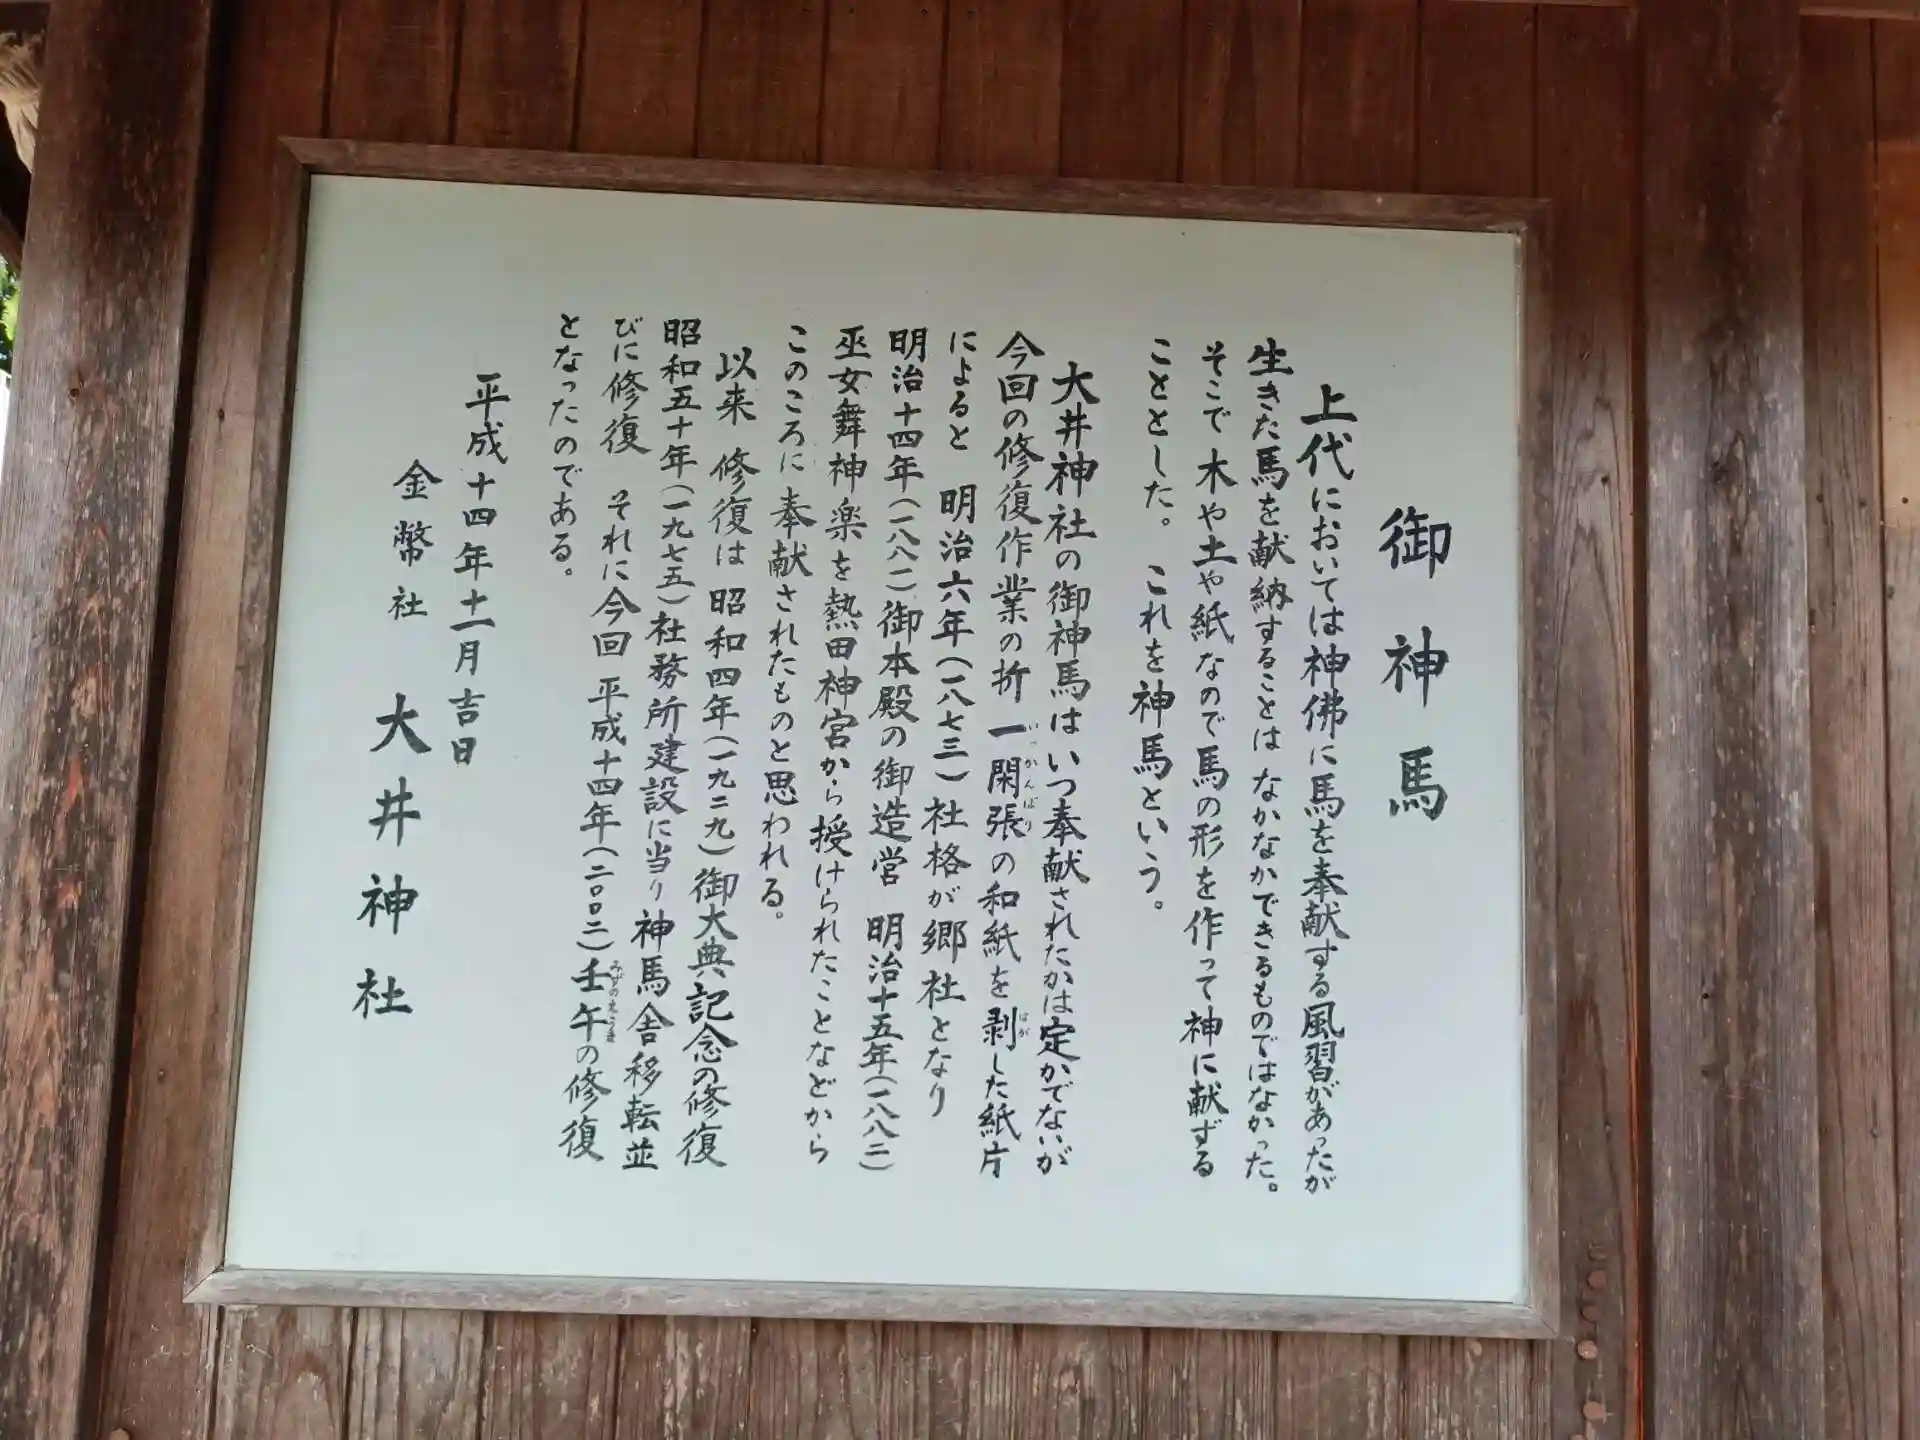 御神馬
上代においては神佛に馬を奉献する風習があったが
生きた馬を献納することは なかなかできるものではなかった。
そこで木や土や紙なので馬の形を作って神に献ずる
こととした。 これを神馬という。
大井神社の御神馬はいつ奉献されたかは定かでないが
今回の修復作業の折 一閑張の和紙を剥した紙片
いっかんばり
はが
によると 明治六年(一八七三)社格が郷社となり
明治十四年(一八八一)御本殿の御造営 明治十五年(一八八二)
巫女舞神楽を熱田神宮から授けられたことなどから
このころに奉献されたものと思われる。
以来 修復は 昭和四年(一九二九)御大典記念の修復
昭和五十年(一九七五)社務所建設に当り神馬舎移転並
びに修復 それに今回 平成十四年(二〇〇二)壬午の修復
みずのえうま
となったのである。
平成十四年十一月吉日
金幣社 大井神社